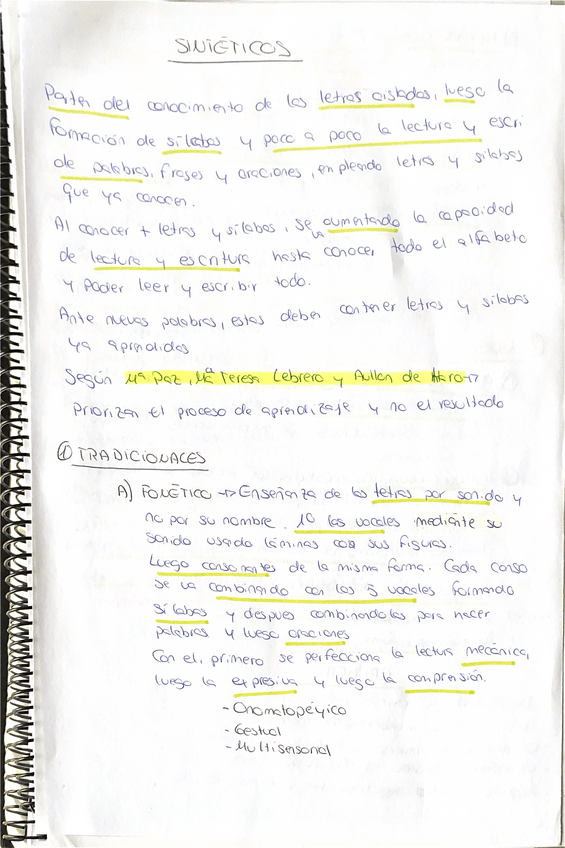 SINTÉTICOS
Parten del conocimiento de las letras aisladas, luego la
formación de sílabas y poco a poco la lectura y escri
de palabras, frases y oraciones, empleando letras y sílabas
que ya conocen.
Al conocer + letras y sílabas, se va aumentando la capacidad
de lectura y escritura hasta conocer todo el alfabeto
y poder leer y escribir todo.
Ante nuevas palabras, estas deben contener letras y sílabas
ya aprendidas
Según Mª Paz, Mª Teresa Lebrero y Aullon de Haro →
Priorizan el proceso de aprendizaje y no el resultado
① TRADICIONALES
A) FONÉTICO → Enseñanza de las letras por sonido y
no por su nombre. 1o las vocales mediante su
sonido usado láminas con sus figuras.
Luego consonantes de la misma forma. Cada conso
se va combinando con las 5 vocales formando
sílabas y despues combinandolas para hacer
palabras y luego oraciones
Con el, primero se perfecciona la lectura mecánica,
luego la expresiva y luego la comprensión.
- Onomatopéyico
- Gestual
- Multisensorial